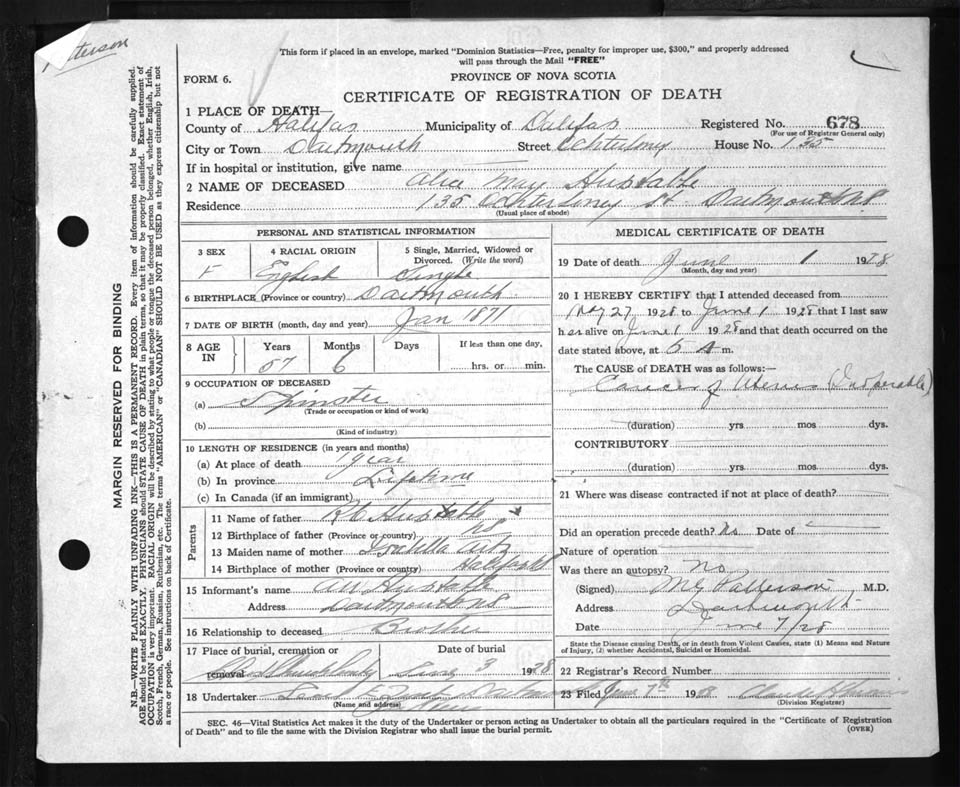 Patterson
This form if placed in an envelope, marked "Dominion Statistics—Free, penalty for improper use, $300," and properly addressed
will pass through the Mail "FREE"
FORM 6.
PROVINCE OF NOVA SCOTIA
CERTIFICATE OF REGISTRATION OF DEATH
1 PLACE OF DEATH
County of Halifax Municipality of Halifax Registered No. 678
(For use of Registrar General only)
City or Town Dartmouth Street Ochterloney House No. 135
If in hospital or institution, give name
2 NAME OF DECEASED Alice May Hustable
Residence 135 Ochterloney St Dartmouth NS
(Usual place of abode)
PERSONAL AND STATISTICAL INFORMATION
3 SEX 4 RACIAL ORIGIN 5 Single, Married, Widowed or
Divorced. (Write the word)
F English Single
6 BIRTHPLACE (Province or country) Dartmouth
7 DATE OF BIRTH (month, day and year) Jan 1871
8 AGE IN Years Months Days If less than one day,
57 6 hrs. or min.
9 OCCUPATION OF DECEASED
(a) Spinster
(Trade or occupation or kind of work)
(b)
(Kind of industry)
10 LENGTH OF RESIDENCE (in years and months)
(a) At place of death 1 year
(b) In province Lifetime
(c) In Canada (if an immigrant)
Parents
11 Name of father Hustable
12 Birthplace of father (Province or country) NS
13 Maiden name of mother
14 Birthplace of mother (Province or country) Halifax NS
15 Informant's name Hustable
Address Dartmouth NS
16 Relationship to deceased Brother
17 Place of burial, cremation or removal Date of burial
June 3 1928
18 Undertaker
(Name and address)
MEDICAL CERTIFICATE OF DEATH
19 Date of death June 1 1928
(Month, day and year)
20 I HEREBY CERTIFY that I attended deceased from
May 27 1928 to June 1 1928 that I last saw
her alive on June 1 1928 and that death occurred on
date stated above, at 5 A m.
The CAUSE of DEATH was as follows:—
Cancer of Uterus (Inoperable)
(duration) yrs mos dys.
CONTRIBUTORY
(duration) yrs mos dys.
21 Where was disease contracted if not at place of death?
Did an operation precede death? No Date of
Nature of operation
Was there an autopsy? No
(Signed) Patterson M.D.
Address Dartmouth
Date June 7/28
State the Disease causing Death, or in death from Violent Causes, state (1) Means and Nature
of Injury, (2) whether Accidental, Suicidal or Homicidal.
22 Registrar's Record Number
23 Filed June 7th 1928
(Division Registrar)
SEC. 46—Vital Statistics Act makes it the duty of the Undertaker or person acting as Undertaker to obtain all the particulars required in the "Certificate of Registration
of Death" and to file the same with the Division Registrar who shall issue the burial permit.
(OVER)
MARGIN RESERVED FOR BINDING
N.B.—WRITE PLAINLY WITH UNFADING INK—THIS IS A PERMANENT RECORD. Every item of information should be carefully supplied.
AGE should be stated EXACTLY. PHYSICIANS should STATE CAUSE OF DEATH in plain terms, so that it may be properly classified. Exact statement of
OCCUPATION is very important. RACIAL ORIGIN will be described by stating to what people or tongue the deceased person belonged, whether English, Irish,
Scotch, French, German, Russian, Ruthenian, etc. The terms "AMERICAN" or "CANADIAN" SHOULD NOT BE USED as they express citizenship but not
a race or people. See instructions on back of Certificate.